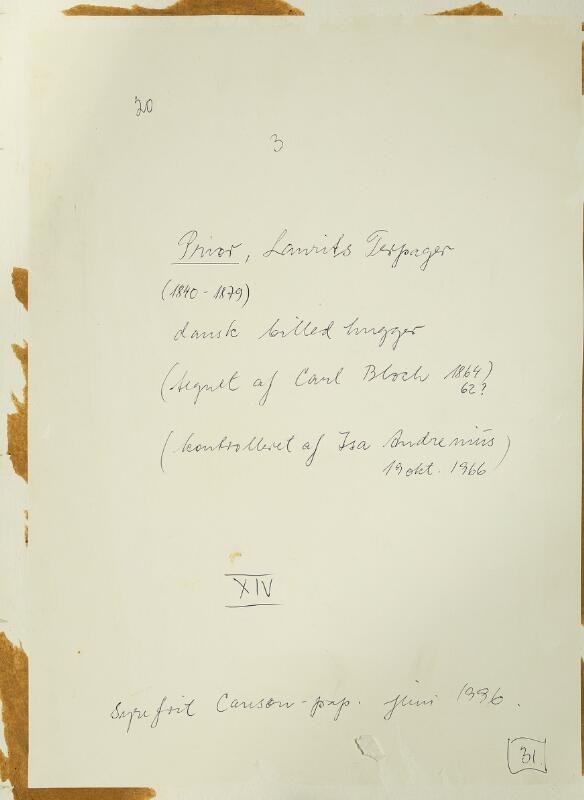 20
3
Prior, Laurits Terpager
(1840-1879)
dansk billedhugger
(tegnet af Carl Bloch 1864)
62?
(kontrolleret af Isa Andrenius)
19 okt. 1966
XIV
Syrefrit Canson-pap. juni 1996.
31